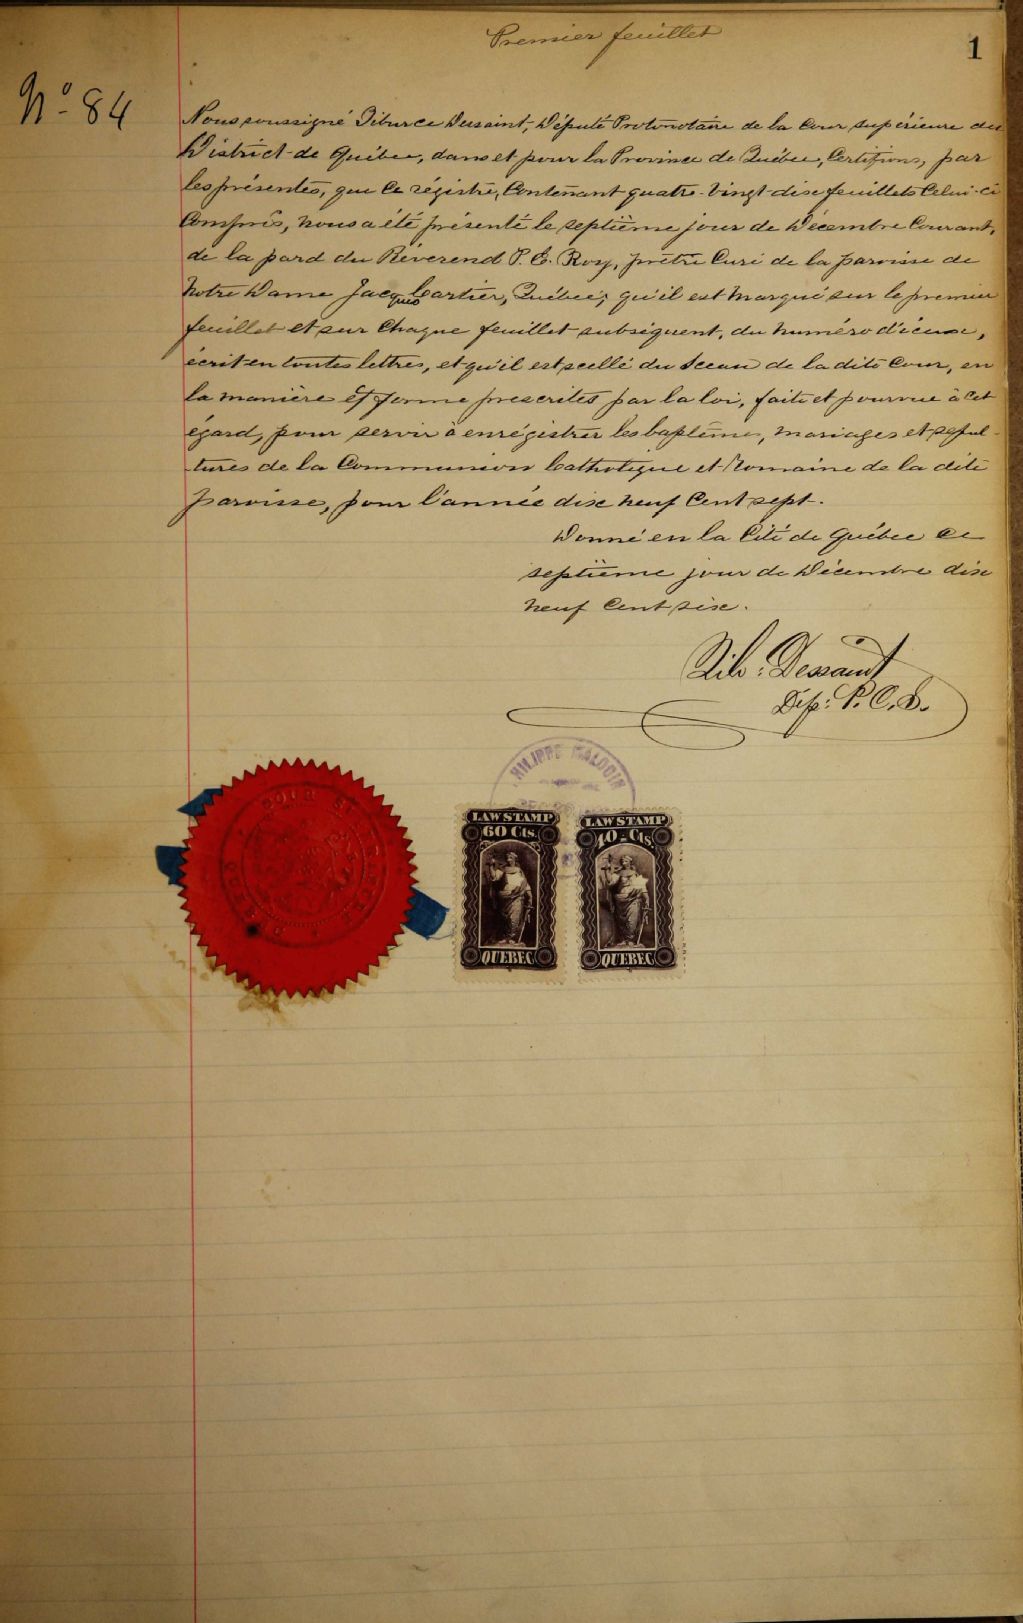 Premier feuillet
1
No 84
Nous soussigné Tiburce Dussaint, Député Protonotaire de la Cour supérieure du
District de Québec, dans et pour la Province de Québec, Certifions, par
les présentes, que ce régistre, Contenant quatre-vingt dix feuillets Celui-ci
Compris, nous a été présenté le septième jour de Décembre Courant,
de la pard du Réverend P. E. Roy, prêtre Curé de la paroisse de
Notre Dame Jacques Cartier, Québec; qu'il est marqué sur le premier
feuillet et sur Chaque feuillet subséquent, du numéro d'icelui,
écrit en toutes lettres, et qu'il est scellé du Sceau de la dite Cour, en
la manière et forme prescrites par la loi, faite et pourvue à cet
égard, pour servir à enrégistrer les baptêmes, mariages et sépul-
tures de la Communion Catholique et Romaine de la dite
paroisse, pour l'année dix neuf Cent sept.
Donné en la Cité de Québec ce
septième jour de Décembre dix
neuf Cent six.
Tib: Dessaint
Dép: P. C. S.
PHILIPPE MALOUIN
LAW STAMP
60 Cts.
QUEBEC
LAW STAMP
10 Cts.
QUEBEC